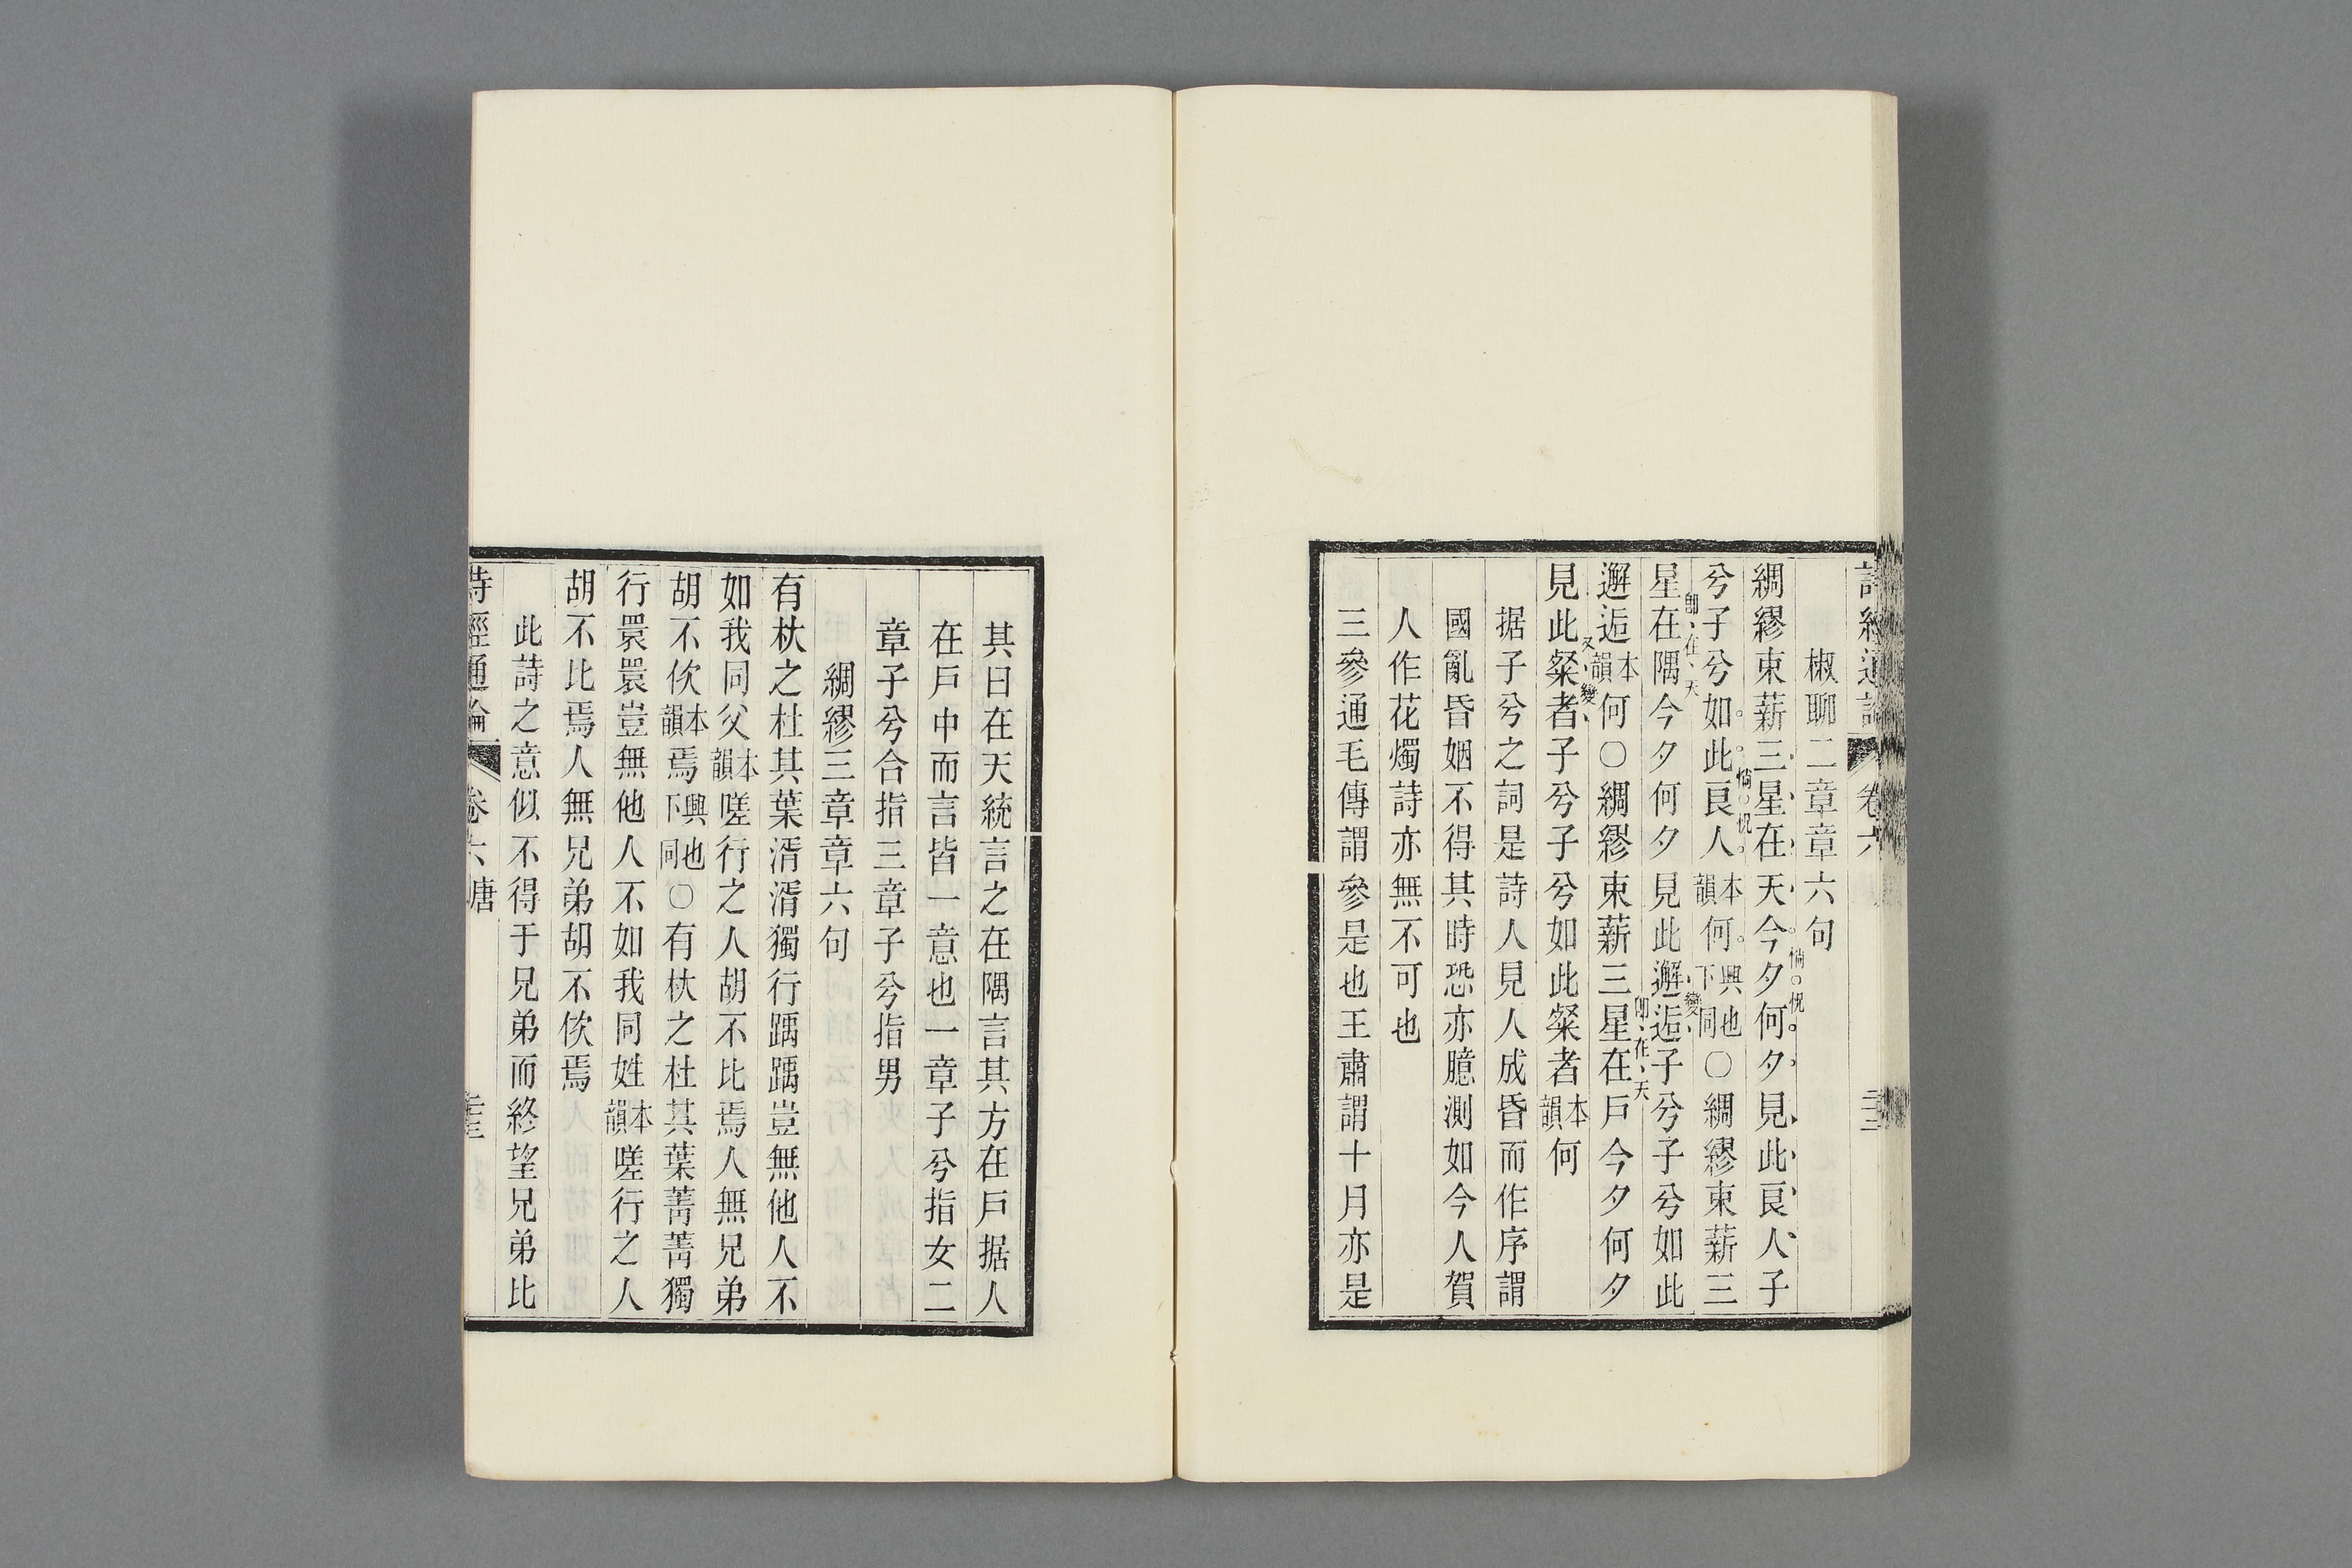 椒聊二章章六句
綢繆束薪三星在天今夕何夕見此良人子
惝怳
兮子兮如此良人本韻何興也下同○綢繆束薪三
惝怳
星在隅今夕何夕見此邂逅子兮子兮如此
卽在天
變
邂逅本韻何○綢繆束薪三星在戶今夕何夕
卽在天
見此粲者子兮子兮如此粲者本韻何
又變
据子兮之詞是詩人見人成昏而作序謂
國亂昏姻不得其時恐亦臆測如今人賀
人作花燭詩亦無不可也
三參通毛傳謂參是也王肅謂十月亦是
其日在天統言之在隅言其方在戶据人
在戶中而言皆一意也一章子兮指女二
章子兮合指三章子兮指男
綢繆三章章六句
有杕之杜其葉湑湑獨行踽踽豈無他人不
如我同父本韻嗟行之人胡不比焉人無兄弟
胡不佽本韻焉興也下同○有杕之杜其葉菁菁獨
行睘睘豈無他人不如我同姓本韻嗟行之人
胡不比焉人無兄弟胡不佽焉
此詩之意似不得于兄弟而終望兄弟比
詩經通論 卷六 唐